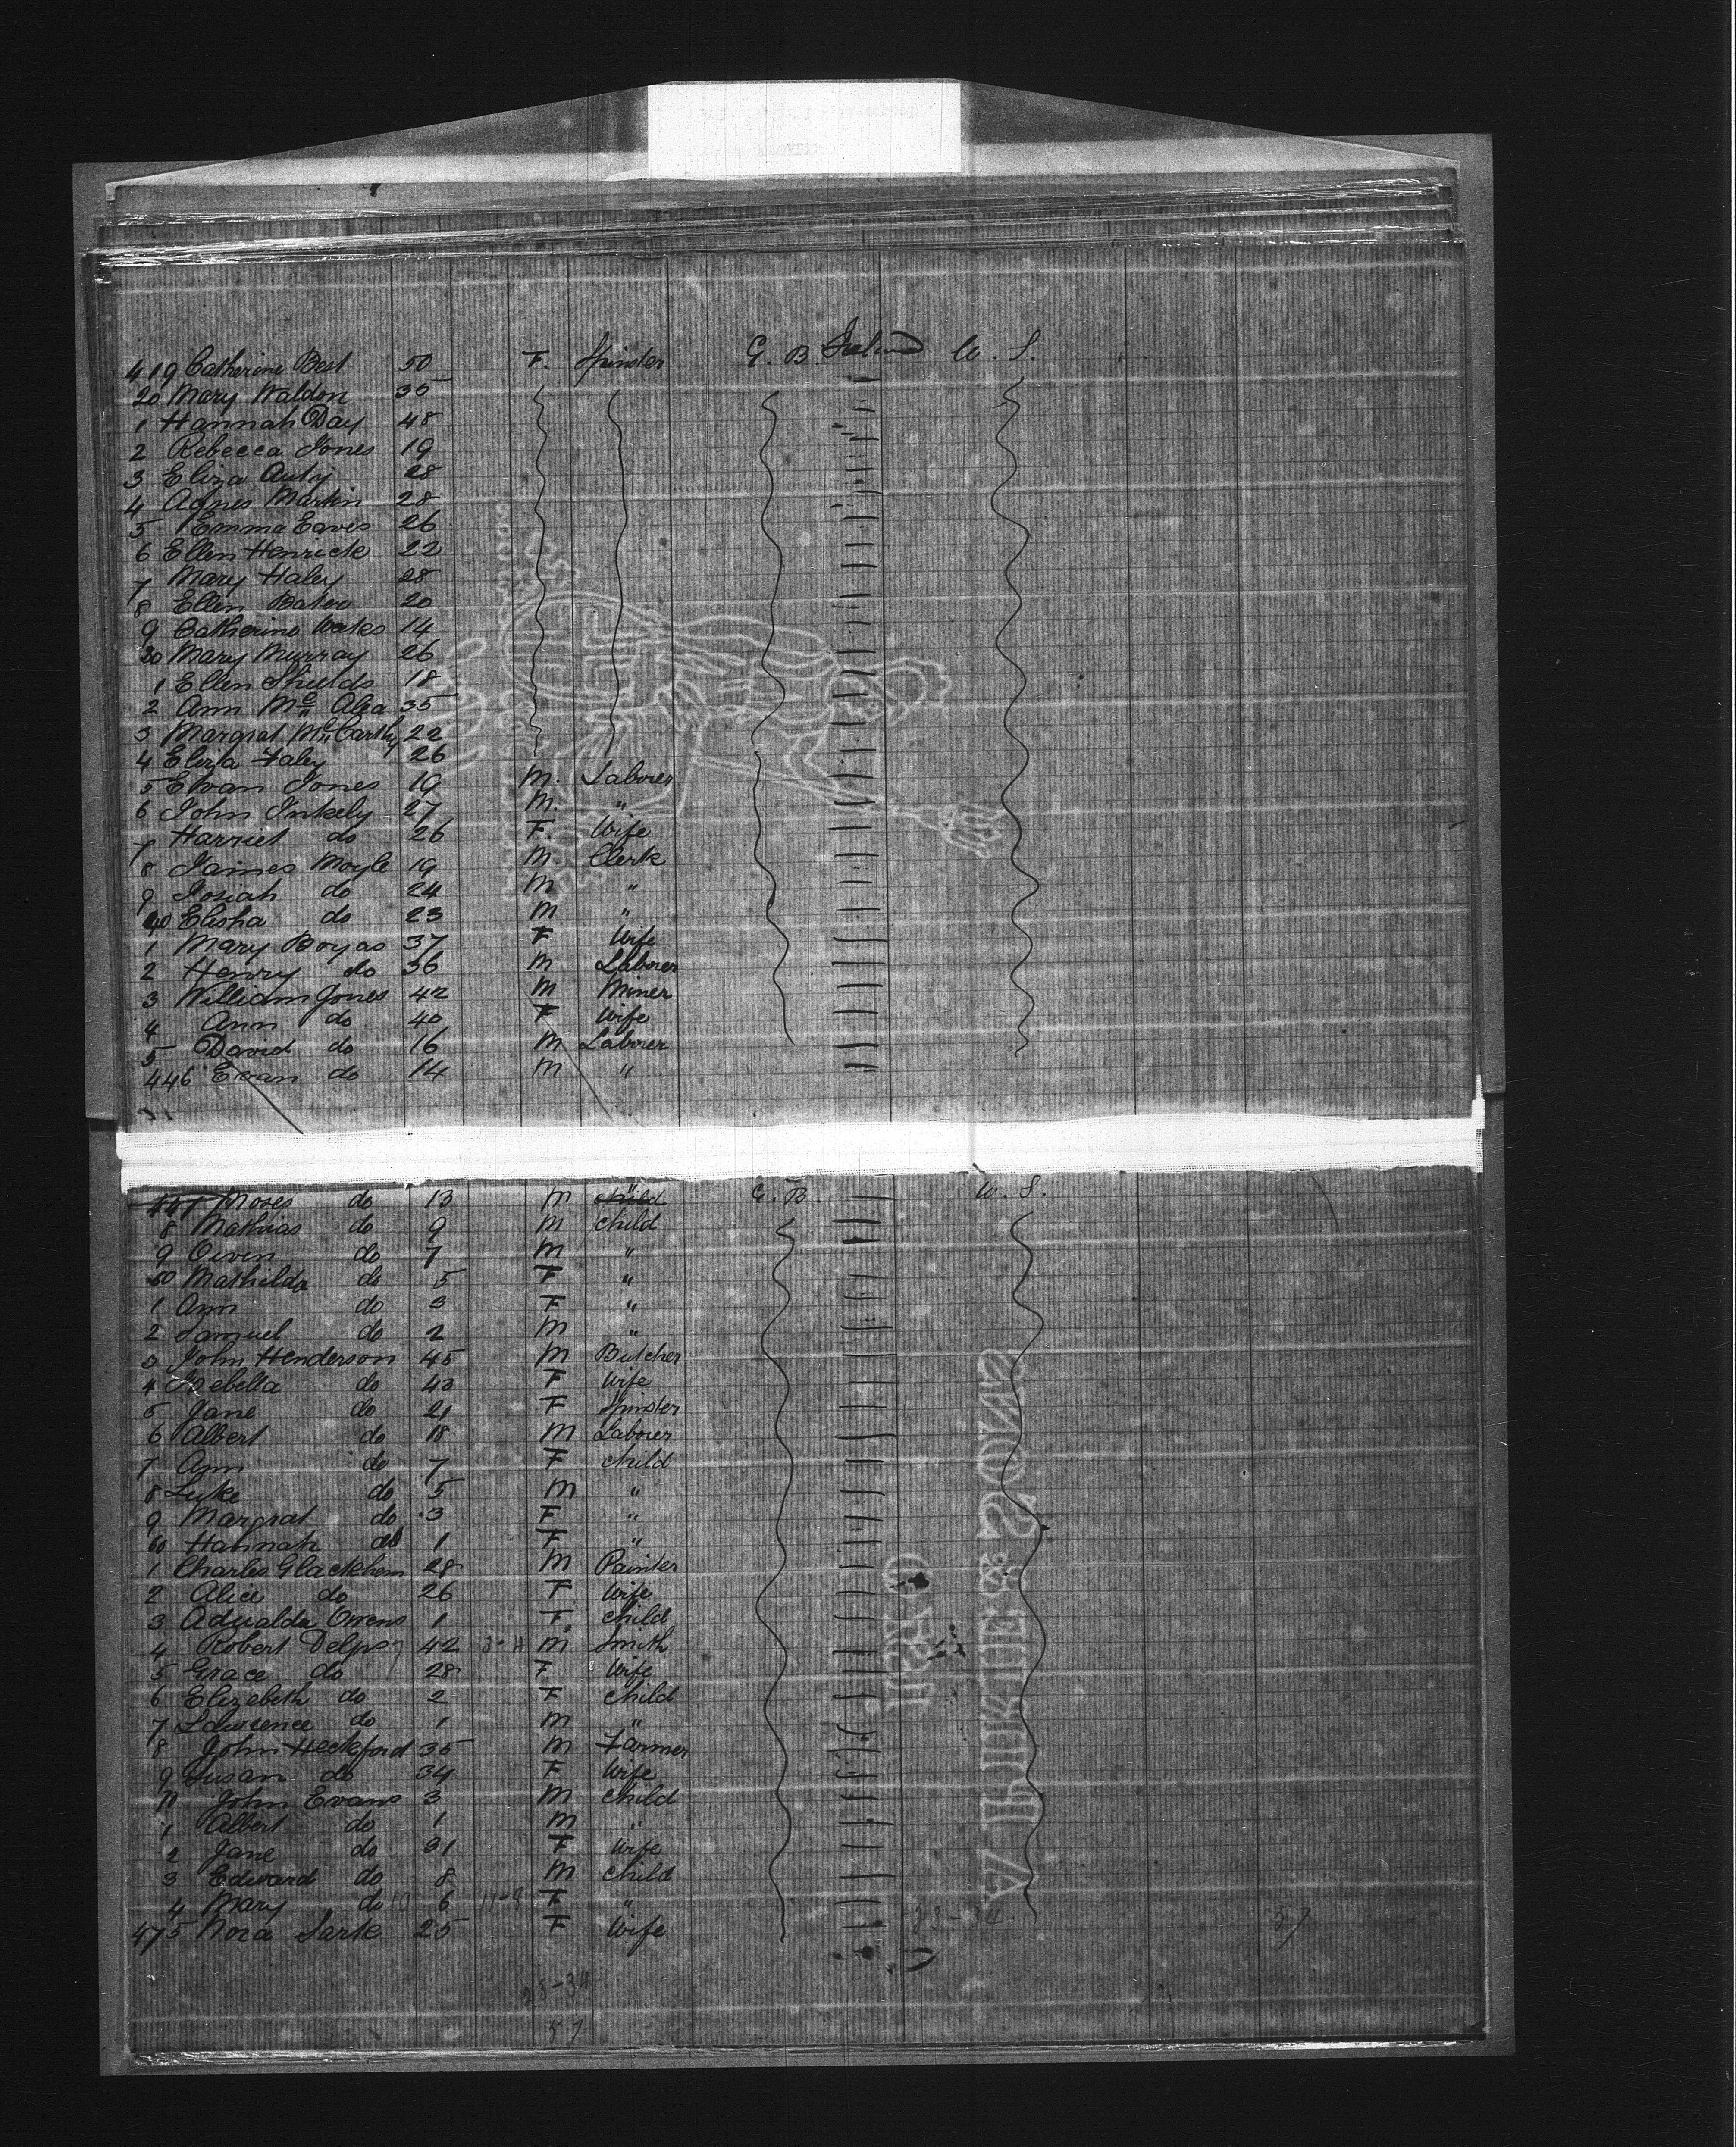 419 Catherine Best 50 F. Spinster G. B. Ireland U. S.
20 Mary Waldon 35
1 Hannah Day 48
2 Rebecca Jones 19
3 Eliza Auty 28
4 Agnes Martin 28
5 Emma Eaves 26
6 Ellen Henrick 22
7 Mary Haley 28
8 Ellen 20
9 Catherine Weeks 14
30 Mary Murray 26
1 Ellen Shields 18
2 Ann Mc Alea 35
3 Margrat Mc Carthy 22
4 Eliza Faley 26
5 Evan Jones 19 M. Laborer
6 John Inkely 27 M. "
7 Harriet do 26 F. Wife
8 James Moyle 19 M. Clerk
9 Josiah do 24 M "
40 Elisha do 23 M "
1 Mary Boyas 37 F Wife
2 Henry do 36 M Laborer
3 William Jones 42 M Miner
4 Ann do 40 F Wife
5 David do 16 M Laborer
446 Evan do 14 M "
447 Moses do 13 M child " G. B. U. S.
8 Mathias do 9 M child
9 Owen do 7 M "
50 Mathilda do 5 F "
1 Ann do 3 F "
2 Samuel do 2 M "
3 John Henderson 45 M Butcher
4 Isebella do 43 F Wife
5 Jane do 21 F Spinster
6 Albert do 18 M Laborer
7 Ann do 7 F child
8 Luke do 5 M "
9 Margrat do 3 F "
60 Hannah do 1 F "
1 Charles Glackhem 28 M Painter
2 Alice do 26 F Wife
3 Adualda Owens 1 F. child
4 Robert Delpey 42 M Smith
5 Grace do 28 F Wife
6 Elizebeth do 2 F child
7 Lawrence do 1 M "
8 John Heckford 35 M Farmer
9 Susan do 34 F Wife
John Evans 3 M child
1 Albert do 1 M "
2 Jane do 31 F Wife
3 Edward do 8 M child
4 Mary do 6 11-9 F "
475 Nora Sark 25 F Wife
33-34 57
33-34
57
W. RUKTIE & SONS